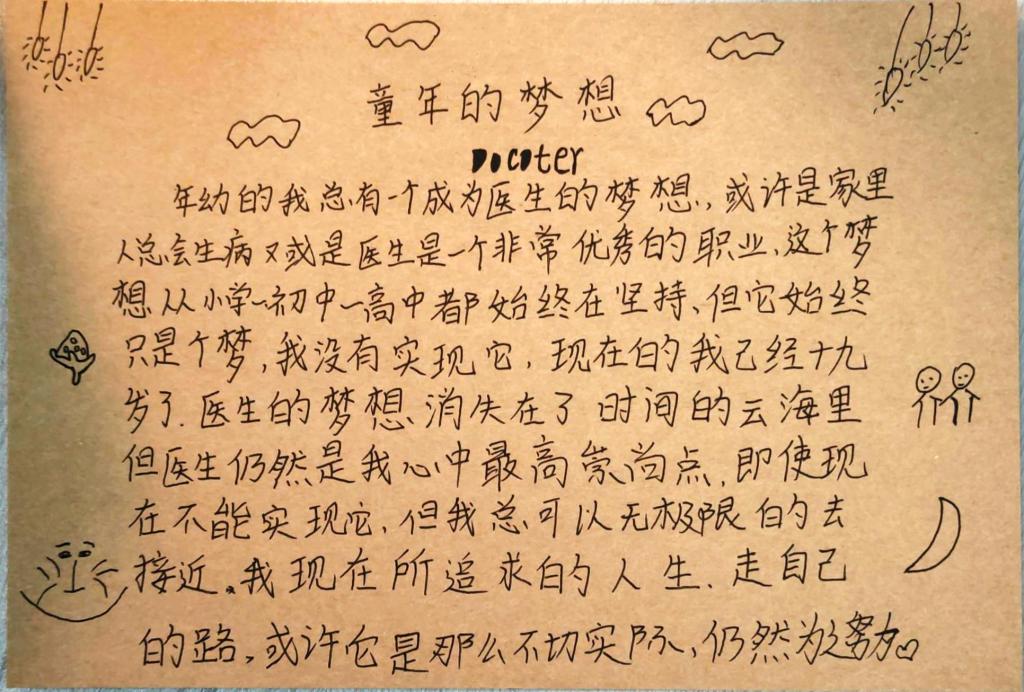 童年的梦想
Docoter
年幼的我总有一个成为医生的梦想,或许是家里
人总会生病又或是医生是一个非常优秀的职业,这个梦
想从小学一初中一高中都始终在坚持、但它始终
只是个梦,我没有实现它,现在的我已经十九
岁了.医生的梦想、消失在了时间的云海里
但医生仍然是我心中最高崇尚点,即使现
在不能实现它,但我总可以无极限的去
接近。我现在所追求的人生、走自己
的路,或许它是那么不切实际、仍然为之努力